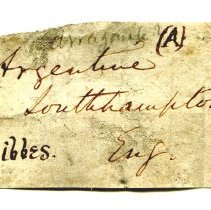 (A)
Argentine
Southhampto
ibbes. Eng.